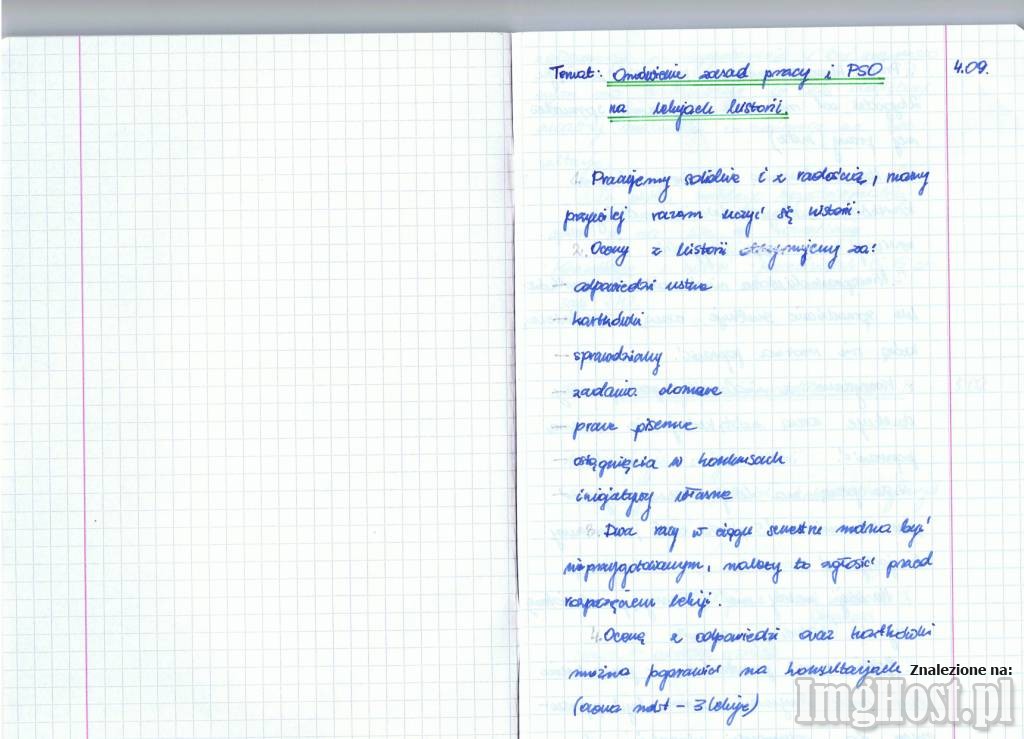 Temat: Omówienie zasad pracy i PSO 4.09.
na lekcjach historii.
1. Pracujemy solidnie i z radością, mamy
przywilej razem uczyć się historii.
2. Oceny z historii otrzymujemy za:
- odpowiedzi ustne
- kartkówki
- sprawdziany
- zadania domowe
- prace pisemne
- osiągnięcia w konkursach
- inicjatywy własne
3. Dwa razy w ciągu semestru można być
nieprzygotowanym, należy to zgłosić przed
rozpoczęciem lekcji.
4. Ocenę z odpowiedzi oraz kartkówki
można poprawić na konsultacjach
(ocena ndst - 3 lekcje)
Znalezione na:
ImgHost.pl